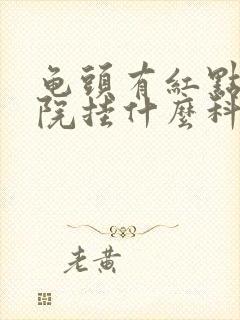 龟頭有紅點
院挂什麼科
老黄